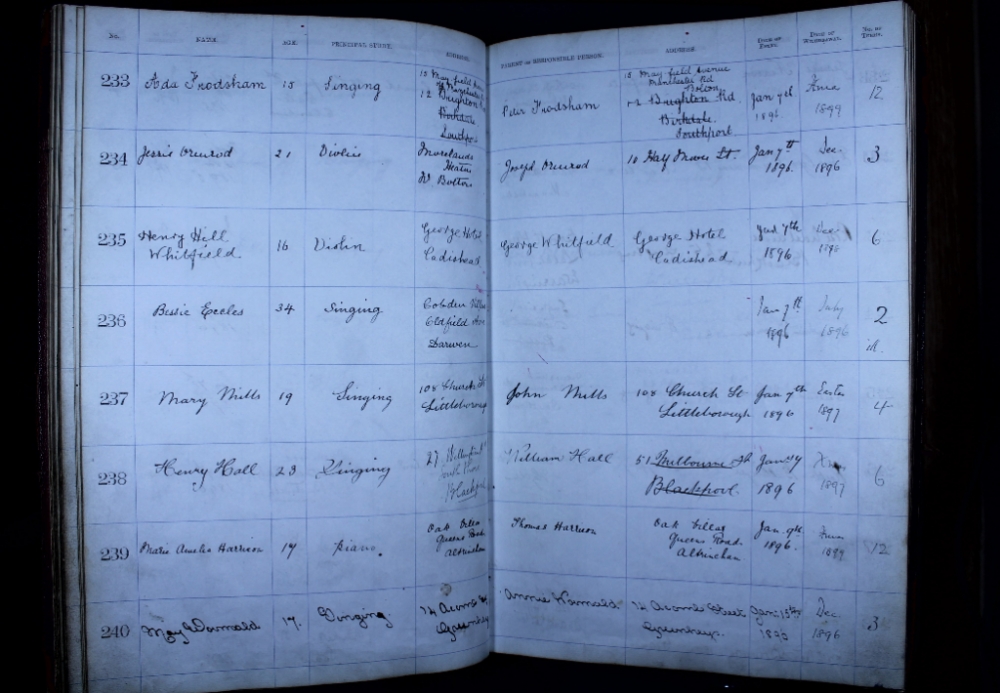 No. NAME. AGE. PRINCIPAL STUDY. ADDRESS. PARENT OR RESPONSIBLE PERSON. ADDRESS. DATE OF ENTRY. DATE OF WITHDRAWAL. No. of TERMS.
233 Ada Frodsham 15 Singing
Peter Frodsham
15 May field Avenue
Manchester Rd
Bolton
12 Brighton Rd.
Birkdale.
Southport
Jan 7th
1896
1899
12
234 Jessie Ormrod 21 Violin
Moorlands
Heaton
Nr Bolton
Joseph Ormrod 10 Half Moon St. Jan 7th
1896.
Dec.
1896
3
235 Henry Hill
Whitfield
16 Violin
George Hotel
Cadishead
George Whitfield
George Hotel
Cadishead
Jan 7th
1896
6
236 Bessie Eccles 34 Singing
Cobden
Oldfield
Darwen
Jan 7th
1896
July
1896
2
237 Mary Mills 19 Singing
108 Church St
Littleborough
John Mills
108 Church St
Littleborough
Jan 7th
1896
Easter
1897
4
238 Henry Hall 23 Singing
27
South Shore
Blackpool
William Hall
51
Blackpool.
1896
1897
6
239 Marie Amelia Harrison 17 Piano.
Oak Villas
Queens Road
Altrincham
Thomas Harrison
Oak Villas
Queens Road.
Altrincham
Jan. 9th
1896.
1899
12
240 May Wormald. 17. Singing
14 Acomb
Greenheys
Annie Wormald.
14 Acomb Street
Greenheys.
Jan: 15th
Dec
1896
3